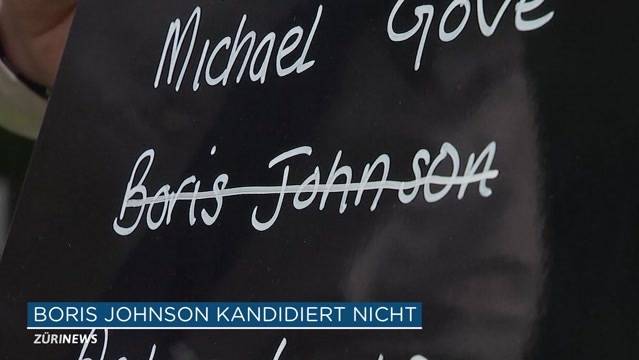 Michael Gove
Boris Johnson
BORIS JOHNSON KANDIDIERT NICHT
ZÜRINEWS